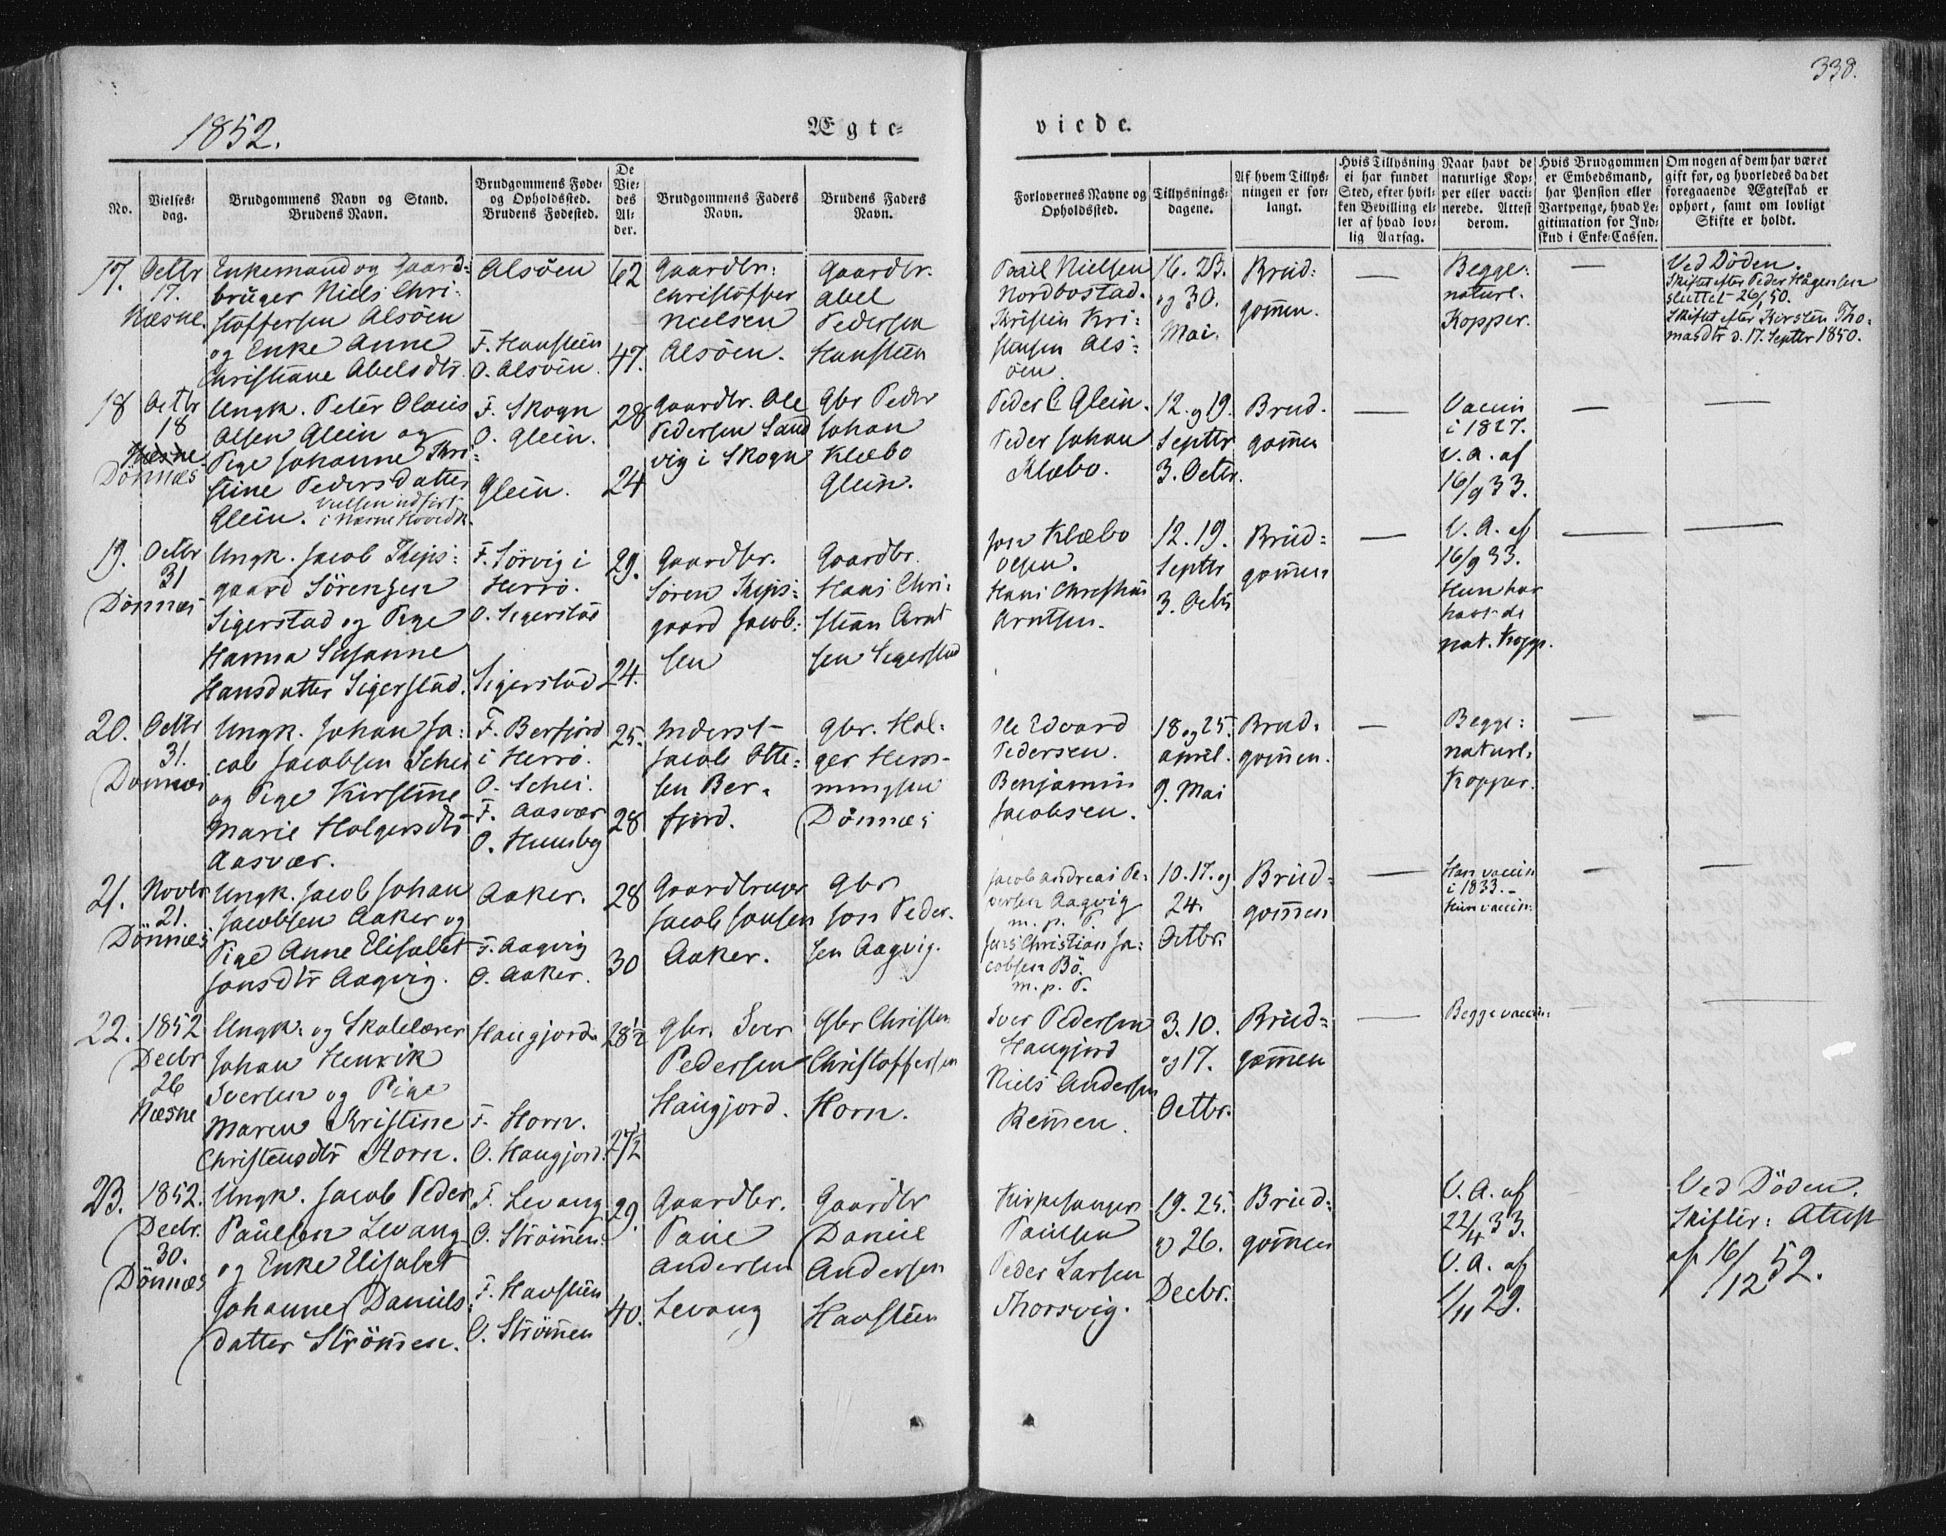 338.
1852.
Ægte-
viede.
No.
Vielses-
dag.
Brudgommens Navn og Stand.
Brudens Navn.
Brudgommens Føde-
og Opholdssted.
Brudens Fødested.
De
Vie-
des
Al-
der.
Brudgommens Faders
Navn.
Brudens Faders
Navn.
Forlovernes Navne og
Opholdssted.
Tillysnings-
dagene.
Af hvem Tillys-
ningen er for-
langt.
Hvis Tillysning
ei har fundet
Sted, efter hvil-
ken Bevilling el-
ler af hvad lov-
lig Aarsag.
Naar havt de
naturlige Kop-
per eller vacci-
nerede. Attest
derom.
Hvis Brudgommen
er Embedsmand,
har Pension eller
Vartpenge, hvad Le-
gitimation for Ind-
skud i Enke-Cassen.
Om nogen af dem har været
gift før, og hvorledes da det
foregaaende Ægteskab er
ophørt, samt om lovligt
Skifte er holdt.
17.
Octbr
17.
Næsne.
Enkemand og Gaard-
bruger Niels Chri-
stoffersen Alsöen
og Enke Anne
Christiane Abelsdtr.
Alsöen
F. Hausteen
O. Alsöen.
62
47.
Gaardbr.
Christoffer
Nielsen
Alsöen.
Gaardbr.
Abel
Pedersen
Hansteen
Paul Nielsen
Nordbostad.
Kristen Kri-
stensen Als-
öen.
16. 23.
og 30.
Mai.
Brud-
gommen.
Begge
naturl.
Kopper.
Ved Döden.
Skiftet efter Peder Hågensen
sluttet 26/ 50.
Skiftet efter Kirsten Tho-
masdtr d. 17. Septbr 1850.
18
Octbr
18
Næsne
Dönnæs
Ungk. Peter Olaus
Olsen Glein og
Pige Johanne Kri-
stine Pedersdatter
Glein. Vielsen udført
i Næsne Hovedk.
F. Skogn
O. Glein.
Glein.
28
24
Gaardbr. Ole
Pedersen Sand
vig i Skogn
Gbr Peder
Johan
Klæbo
Glein.
Peder C Glein.
Peder Johan
Klæbo.
12. og 19.
Septbr
3. Octbr.
Brud.
gommen
Vaccin
i 1827.
V. A. af
16/9 33.
19.
Octbr
31
Dönnæs
Ungk. Jacob Theps-
gaard Sörensen
Sigerstad og Pige
Hanna Susanne
Hansdatter Sigerstad.
F. Sörvig i
Herrö.
O. Sigerstad
Sigerstad
29.
24.
Gaardbr.
Sören Theps-
gaard Jacob-
sen
Gaardbr.
Hans Chri-
stian Arnt
sen Sigerstad
Jon Klæbo
Olsen.
Hans Christian
Arntsen.
12. 19.
Septbr
3. Octbr
Brud-
gommen
V. A. af
16/9 33.
Hun har
havt de
nat. Kopp.
20.
Octbr
31.
Dönnæs
Ungk. Johan Ja-
cob Jacobsen Schei
og Pige Kirstine
Marie Holgersdtr
Aasvær.
F. Berfjord
i Herrö.
O. Schei.
F. Aasvær
O. Humsby
25.
28
Inderst
Jacob Otte-
sen Ber-
fjord.
Gbr. Hol-
ger Hem-
mingsen
Dönnæs
Ole Edvard
Pedersen.
Benjamin
Jacobsen.
18 og 25.
April.
9. Mai
Brud-
gommen.
Begge
naturl.
Kopper.
21.
Novbr
21.
Dönnæs
Ungk. Jacob Johan
Jacobsen Aaker og
Pige Anne Elisabet
Jonsdtr Aagvig.
Aaker.
F. Aagvig
O. Aaker.
28
30
Gaardbruger
Jacob Jonsen
Aaker.
Gbr
Jon Peder-
sen Aagvig.
Jacob Andreas Pe-
dersen Aagvig
m. p. P.
Jens Christian Ja-
cobsen Bö.
m. p. P.
10. 17. og
24.
Octbr.
Brud-
gommen
Han vaccin
i 1833.
Hun vaccin.
22.
1852
Decbr
26
Næsne
Ungk. og Skolelærer
Johan Henrik
Iversen og Pige
Maren Kristine
Christensdtr Horn.
Haugjord.
F. Horn.
O. Haugjord.
28½
27½
Gbr. Iver
Pedersen
Haugjord.
Gbr Christen
Christoffersen
Horn.
Iver Pedersen
Haugjord
Niels Andersen
Remen.
3. 10.
og 17.
Octbr.
Brud-
gommen
Begge vaccin.
23.
1852.
Decbr.
30.
Dönnæs
Ungk. Jacob Peder
Paulsen Levang
og Enke Elisabet
Johanne Daniels
datter Strömen.
F. Levang
O. Strömen.
F. Havsteen
O. Strömen
29.
40.
Gaardbr.
Paul
Andersen
Levang
Gaardbr
Daniel
Andersen
Havsteen
Kirkesanger
Paulsen
Peder Larsen
Thorsvig.
19. 25.
og 26.
Decbr.
Brud-
gommen
V. A. af
22/4 33.
V. A. af
1/11 29.
Ved Döden.
Skifter: Attest
af 16/12 52.